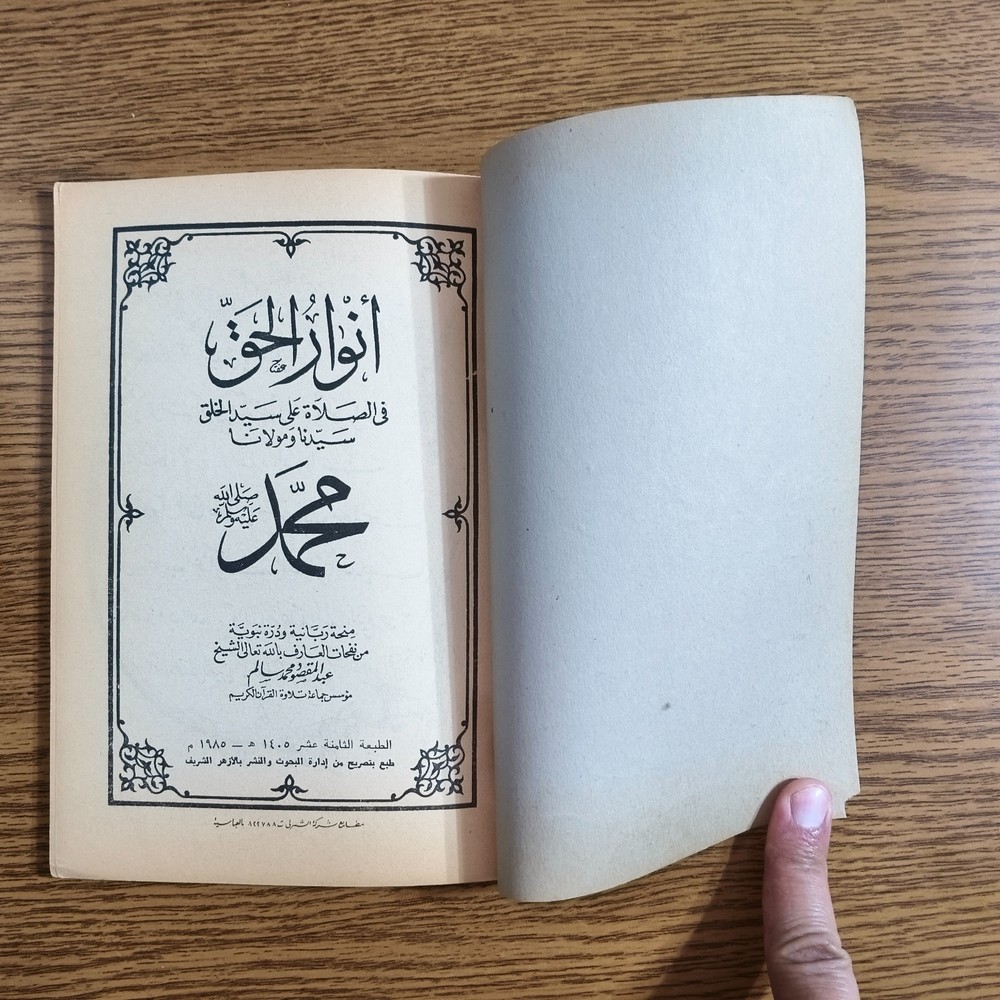 أنْوارُ الحَقّ
فى الصَلاَة عَلى سَيّد الخلق
سَيّدنَا ومَولانَا
محمَّد
صَلى الله
عَليْه وسَلم
مِنحة رَبَانية ودُرّة نبَويَّة
من نفحات العارف بالله تعالى الشيخ
عبد المقصود محمد سالم
مؤسس جماعة تلاوة القرآن الكريم
الطبعة الثامنة عشر ١٤٠٥ هـ — ١٩٨٥ م
طبع بتصريح من إدارة البحوث والنشر بالأزهر الشريف
مطابع شركة الشمرلى ت ٨٢٢٧٨٨ بالعباسية